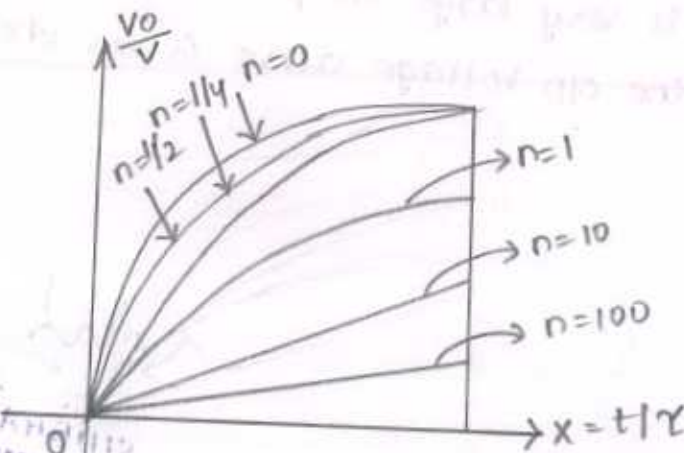 V0
V
n=0
n=1/4
n=1/2
n=1
n=10
n=100
0
x = t/τ